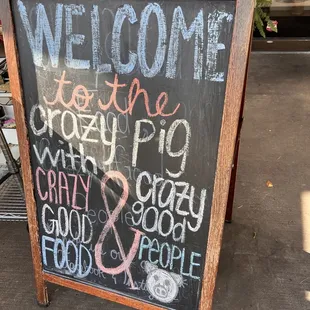 WELCOME
to the
crazy PIG
with
CRAZY & crazy
GOOD good
FOOD PEOPLE